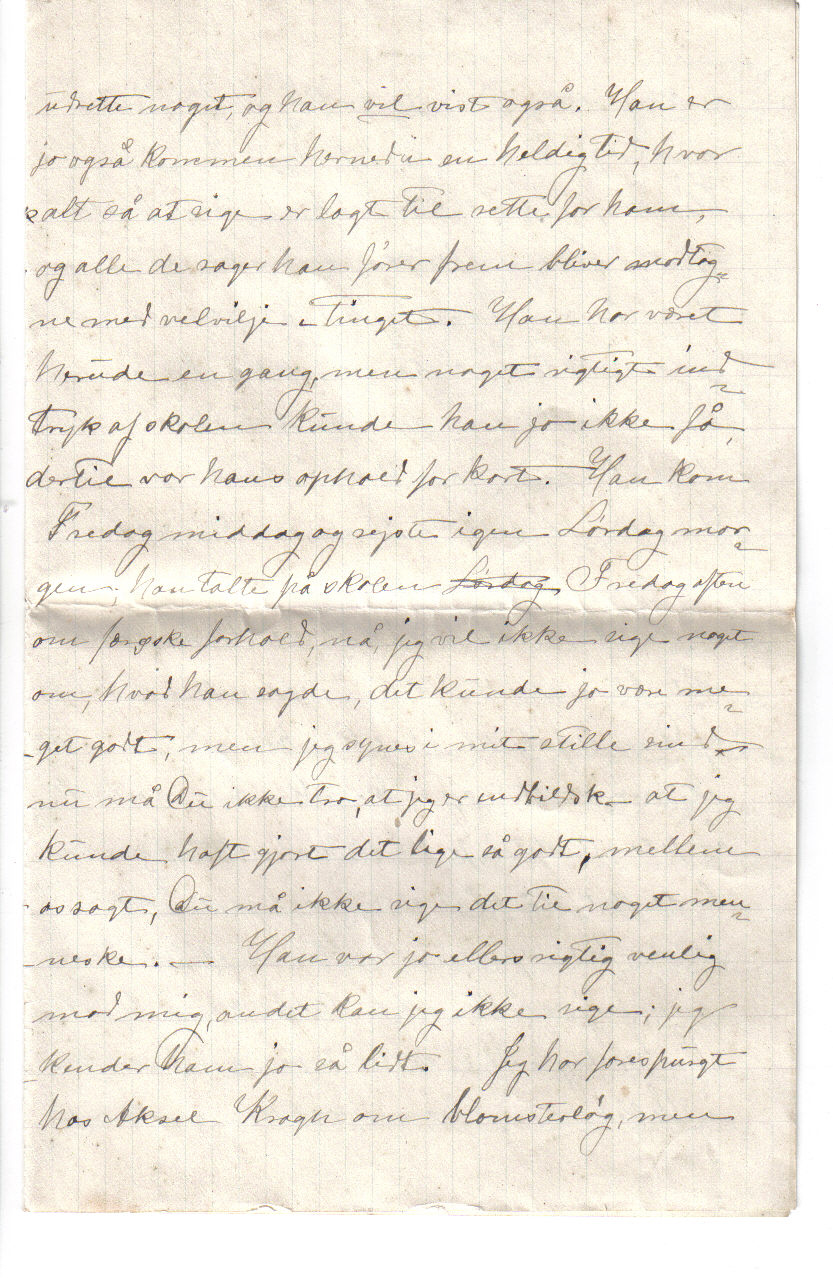 udrette noget, og han vil vist også. Han er
jo også kommen herned i en heldig tid, hvor
alt så at sige er lagt til rette for ham,
og alle de sager han fører frem bliver modtag-
ne med velvilje i Tinget. Han har været
herude en gang, men noget rigtigt ind-
tryk af skolen kunde han jo ikke få,
dertil var hans ophold for kort. Han kom
Fredag middag og rejste igen Lørdag mor-
gen, han talte på skolen Lørdag Fredag aften
om færøske forhold, nå, jeg vil ikke sige noget
om, hvad han sagde, det kunde jo være me-
get godt, men jeg synes i mit stille sind -
nu må Du ikke tro, at jeg er indbildsk - at jeg
kunde haft gjort det lige så godt, mellem
os sagt, Du må ikke sige det til noget men-
neske. — Han var jo ellers rigtig venlig
mod mig, andet kan jeg ikke sige; jeg
kender ham jo så lidt. Jeg har forespurgt
hos Aksel Kragh om blomsterløg, men